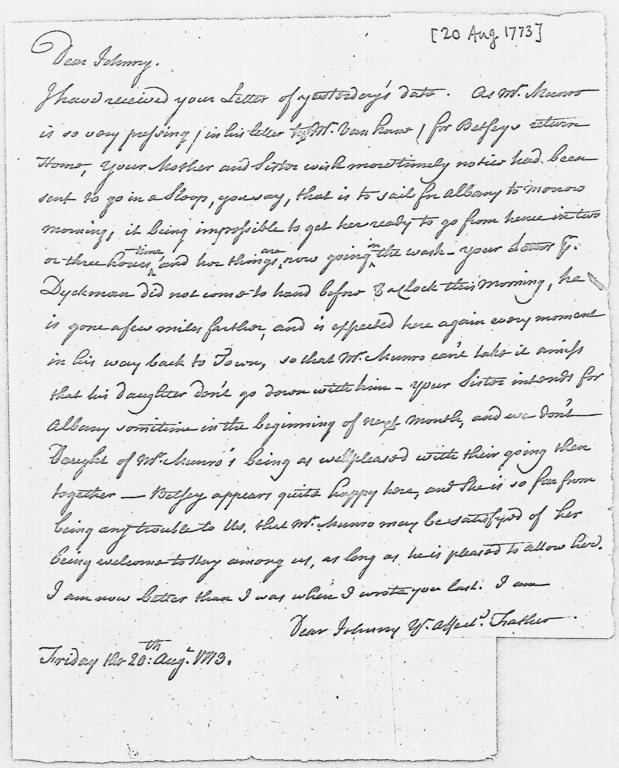 [20 Aug 1773]
Dear Johnny.
I have received your Letter of yesterday's date. As Mr. Munro
is so very pressing, (in his letter to Mr. Van horne) for Betseys return
Home, your Mother and Sister wish more timely notice had been
sent to go in a Sloop, you say, that is to sail for Albany to morrow
morning, it being impossible to get her ready to go from hence in two
or three hours time, and her things are now going in the wash - your Letter by
Dyckman did not come to hand before 8 oClock this Morning, he
is gone a few miles farther, and is expected here again every moment
in his way back to Town, so that Mr. Munro can't take it amiss
that his daughter don't go down with him - your Sister intends for
Albany sometime in the beginning of next Month, and we don't
of Mr. Munro's being as well pleased with their going then
together — Betsey appears quite happy here, and she is so far from
being any trouble to Us, that Mr. Munro may be satisfyed of her
being welcome to stay among us, as long as he is pleased to allow her.
I am now better than I was when I wrote you last. I am
Dear Johnny Yr. Affect. Father
Friday the 20th: Augt. 1773.